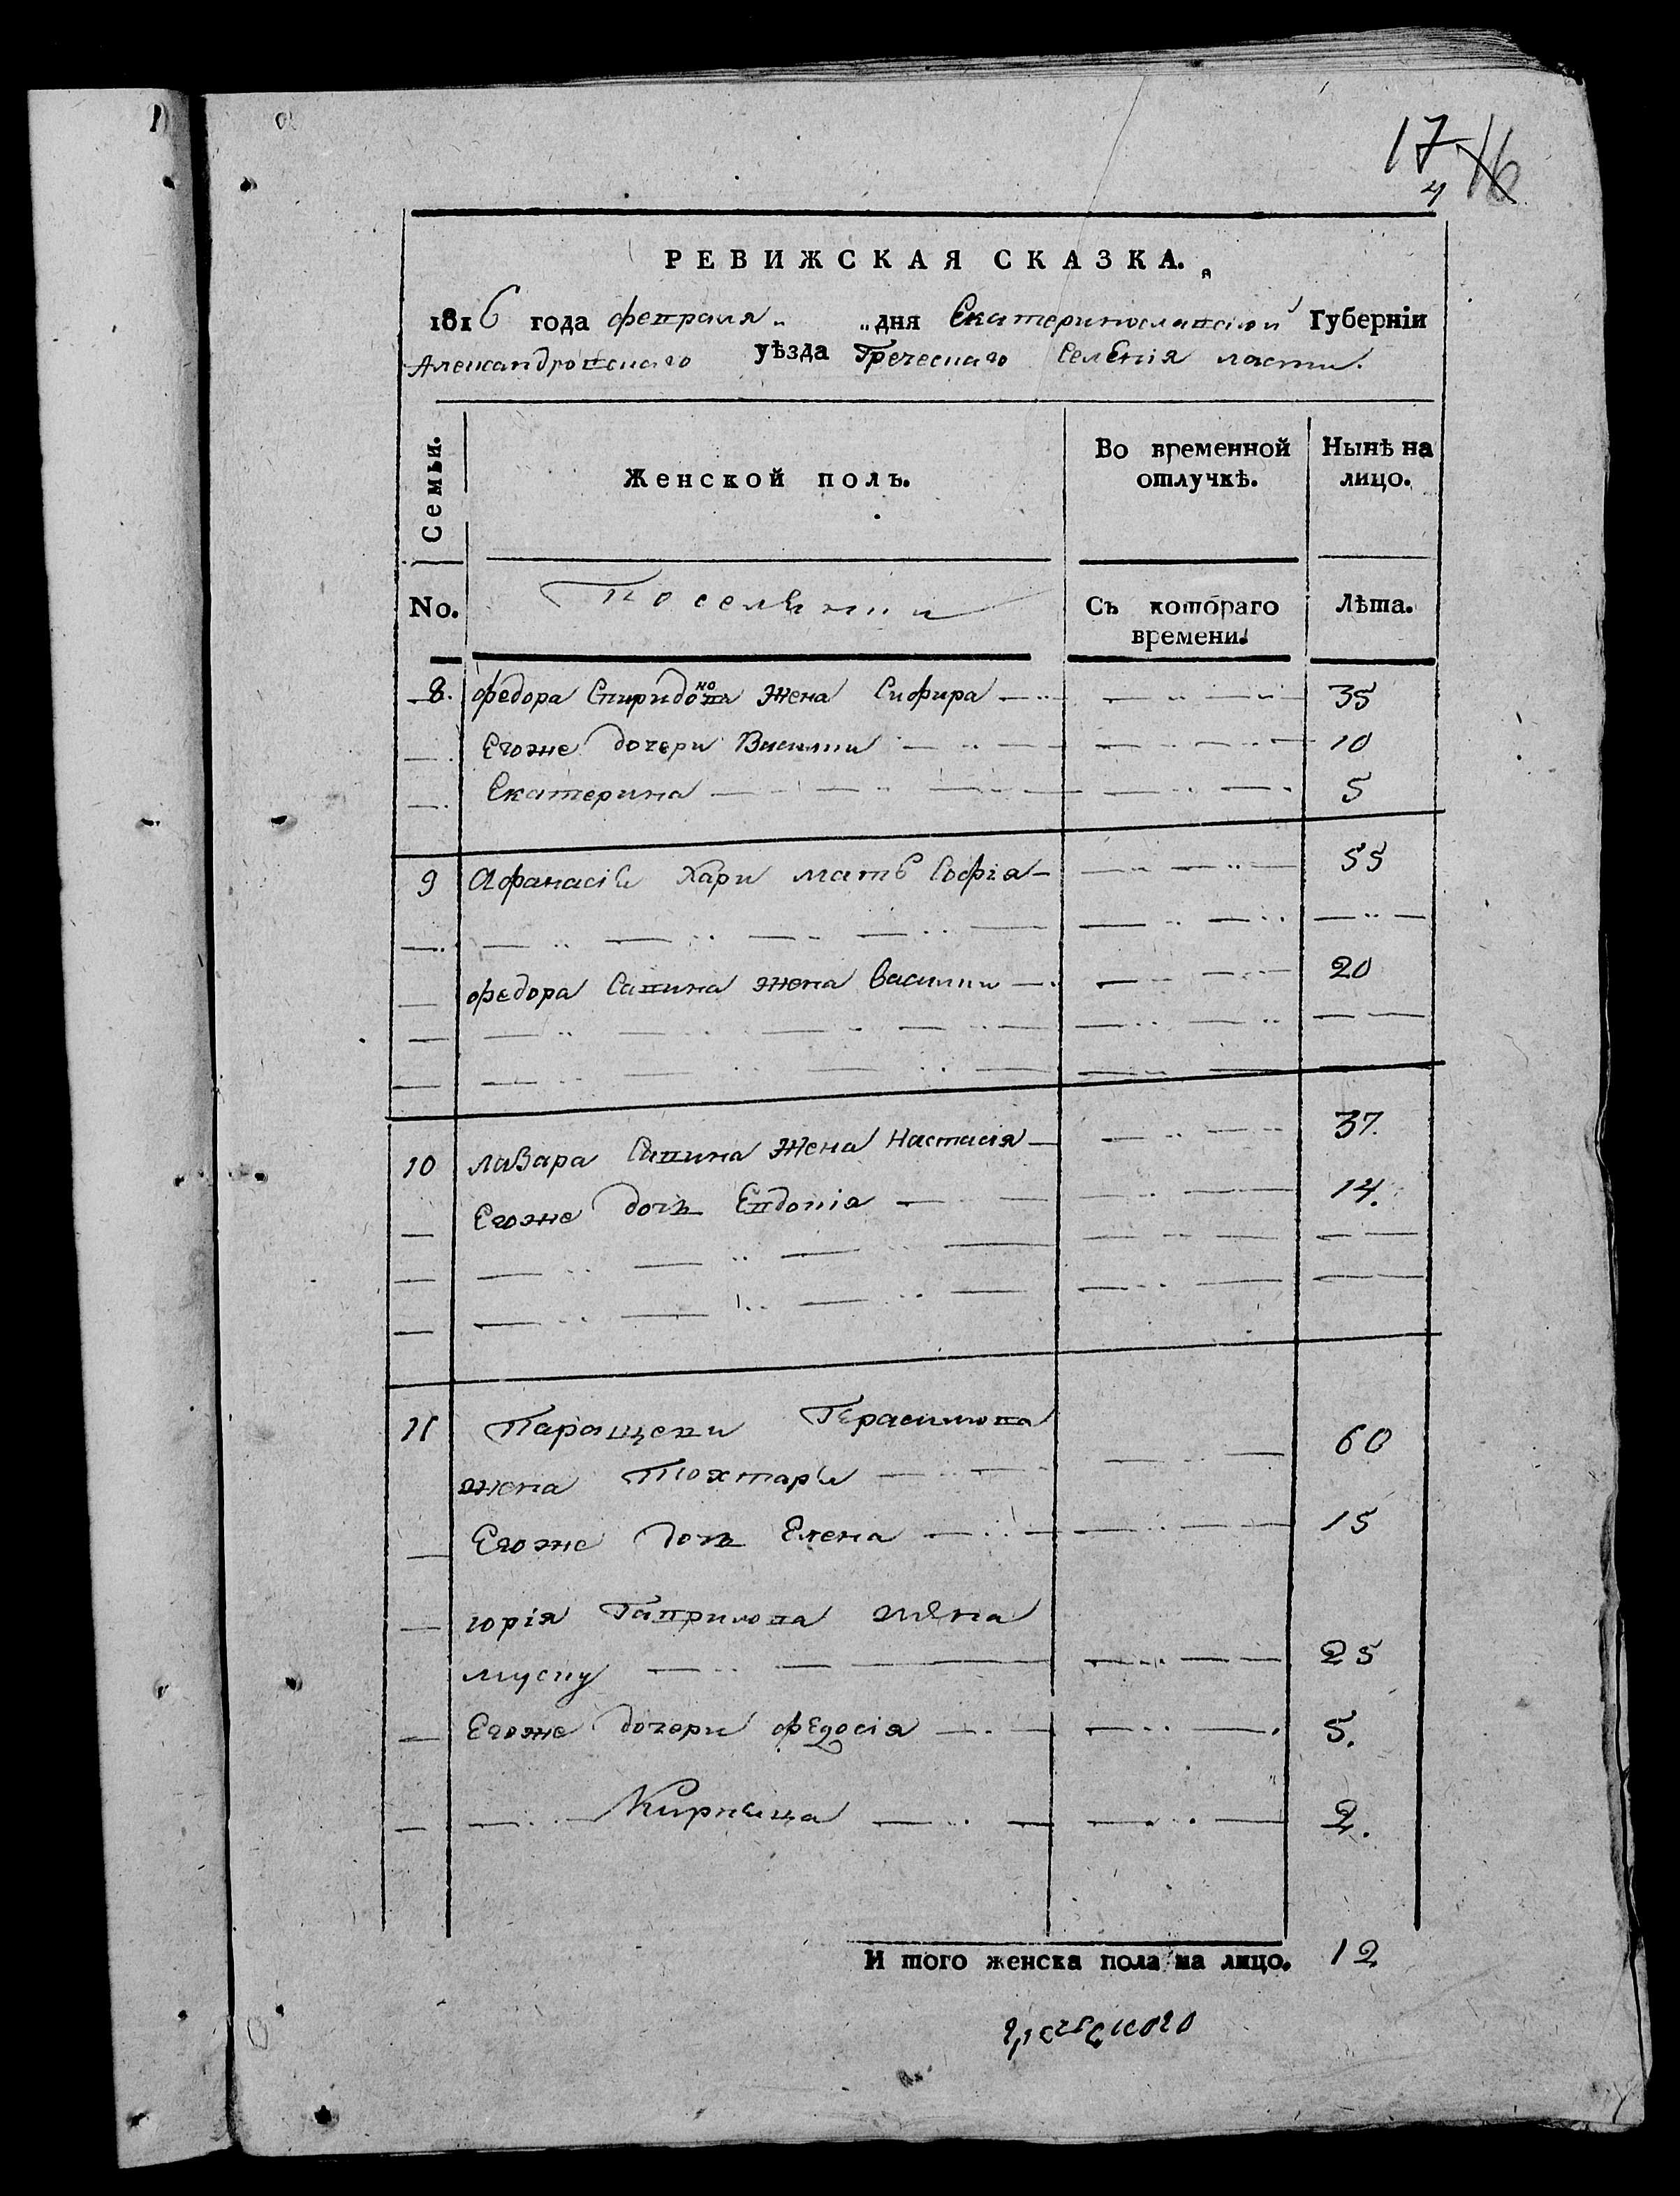 17 16
4
РЕВИЖСКАЯ СКАЗКА.
1816 года февраля „ „ дня Екатеринославской Губерніи
Александровскаго уѣзда Греческаго Селенія ласпи.
Семьи. Женской полъ. Во временной отлучкѣ. Нынѣ на лицо.
No. Поселяни Съ котораго времени. Лѣта.
8. федора Спиридонова Жена Сифира 35
Егоже дочери Василии 10
Екатерина 5
9 Афанасіи Хари мать Софія 55
федора Савина жена Василии 20
10 лазара Савина Жена Настасія 37.
Егоже дочь Евдокія 14.
11 Паращеви Герасимова
жена Тохтари 60
Егоже дочь Елена 15
юрія Гаврилова жена
муску 25
Егоже дочери федосія 5.
Кирьеца 2.
И того женска пола на лицо. 12
греческого